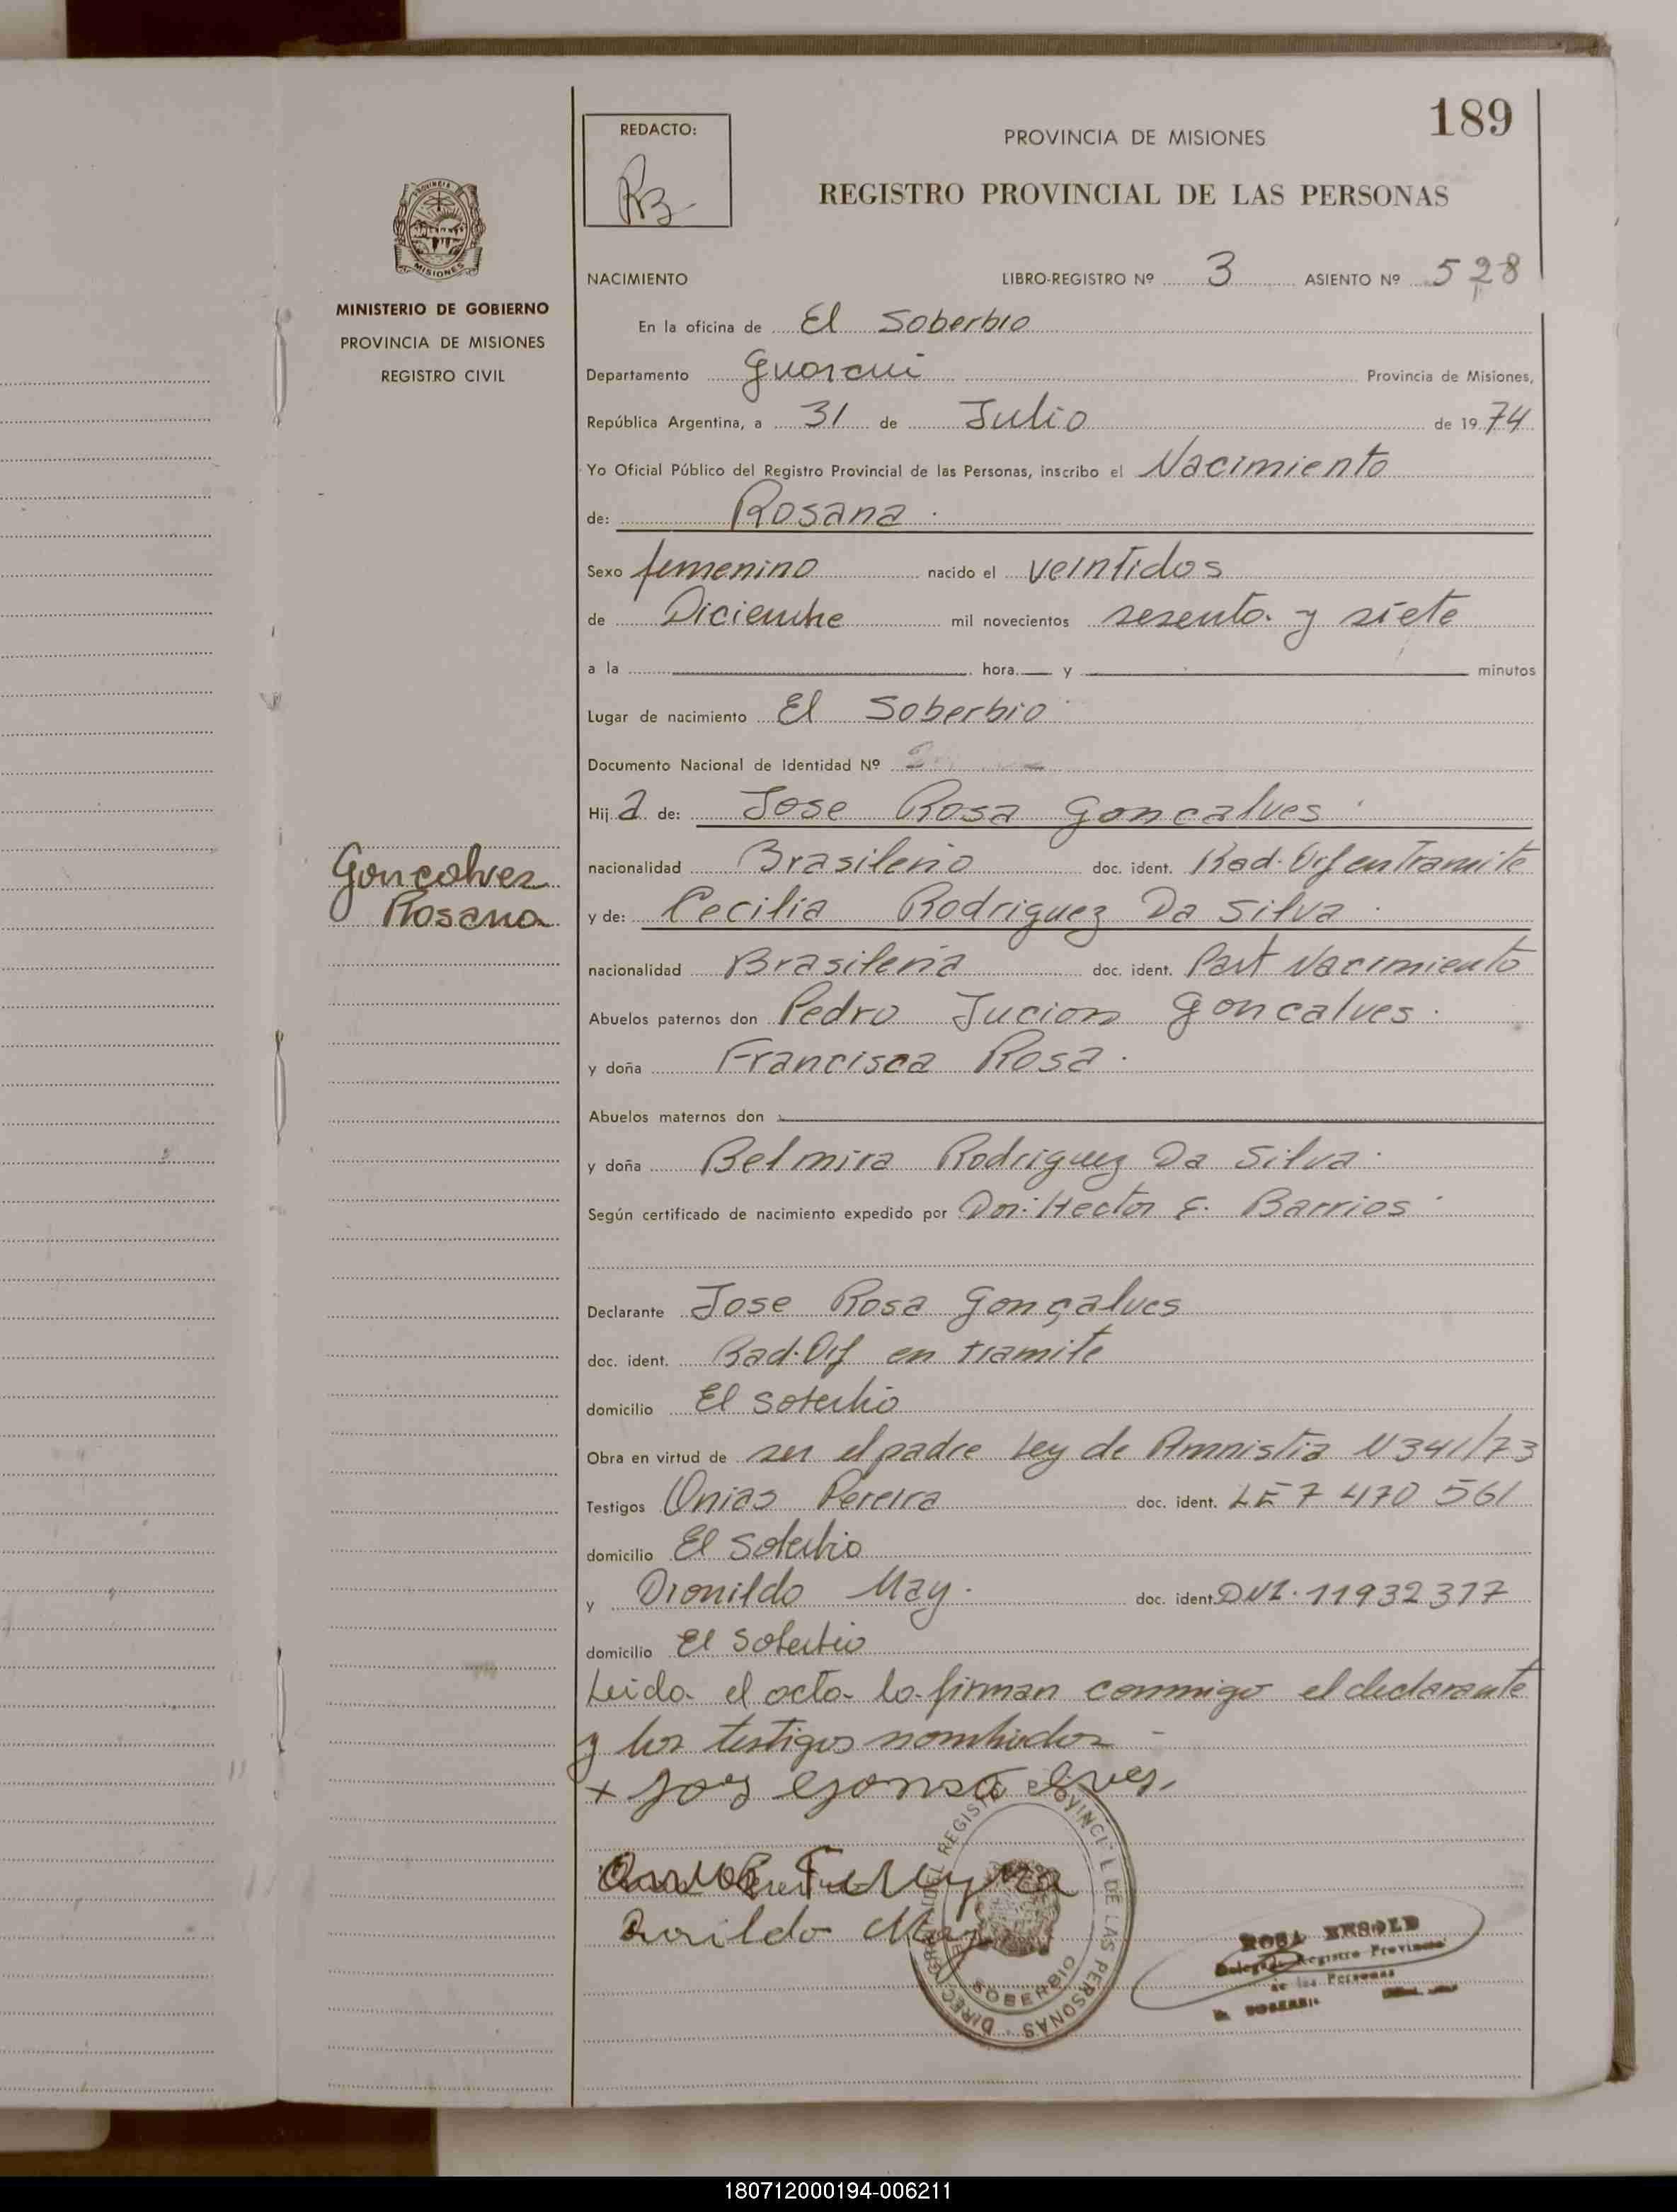 189
REDACTO:
PROVINCIA DE MISIONES
REGISTRO PROVINCIAL DE LAS PERSONAS
PROVINCIA
MISIONES
MINISTERIO DE GOBIERNO
PROVINCIA DE MISIONES
REGISTRO CIVIL
NACIMIENTO LIBRO-REGISTRO Nº 3 ASIENTO Nº 528
En la oficina de El Soberbio
Departamento Guarani Provincia de Misiones,
República Argentina, a 31 de Julio de 1974
Yo Oficial Público del Registro Provincial de las Personas, inscribo el Nacimiento
de: Rosana
Sexo femenino nacido el veintidos
de Diciembre mil novecientos sesenta y siete
a la hora y minutos
Lugar de nacimiento El Soberbio
Documento Nacional de Identidad Nº
Hija de: Jose Rosa Goncalves
Goncalvez
Rosana
nacionalidad Brasileño doc. ident. Rad. Orf en Tramite
y de: Cecilia Rodriguez Da Silva
nacionalidad Brasileña doc. ident. Part Nacimiento
Abuelos paternos don Pedro Jucion Goncalves
y doña Francisca Rosa
Abuelos maternos don
y doña Belmira Rodriguez Da Silva
Según certificado de nacimiento expedido por Dr. Hector E. Barrios
Declarante Jose Rosa Gonçalves
doc. ident. Rad. Orf en tramite
domicilio El Soberbio
Obra en virtud de ser el padre Ley de Amnistia N 341/73
Testigos Onias Pereira doc. ident. LE 7 470 561
domicilio El Soberbio
y Dionildo May. doc. ident. DNI. 11932317
domicilio El Soberbio
Leida el acta la firman conmigo el declarante
y los testigos nombrados
DIRECCION GRAL. DEL REGISTRO PROVINCIAL DE LAS PERSONAS
SOBERBIO
May
Delegado Registro Provincial
de las Personas
180712000194-006211